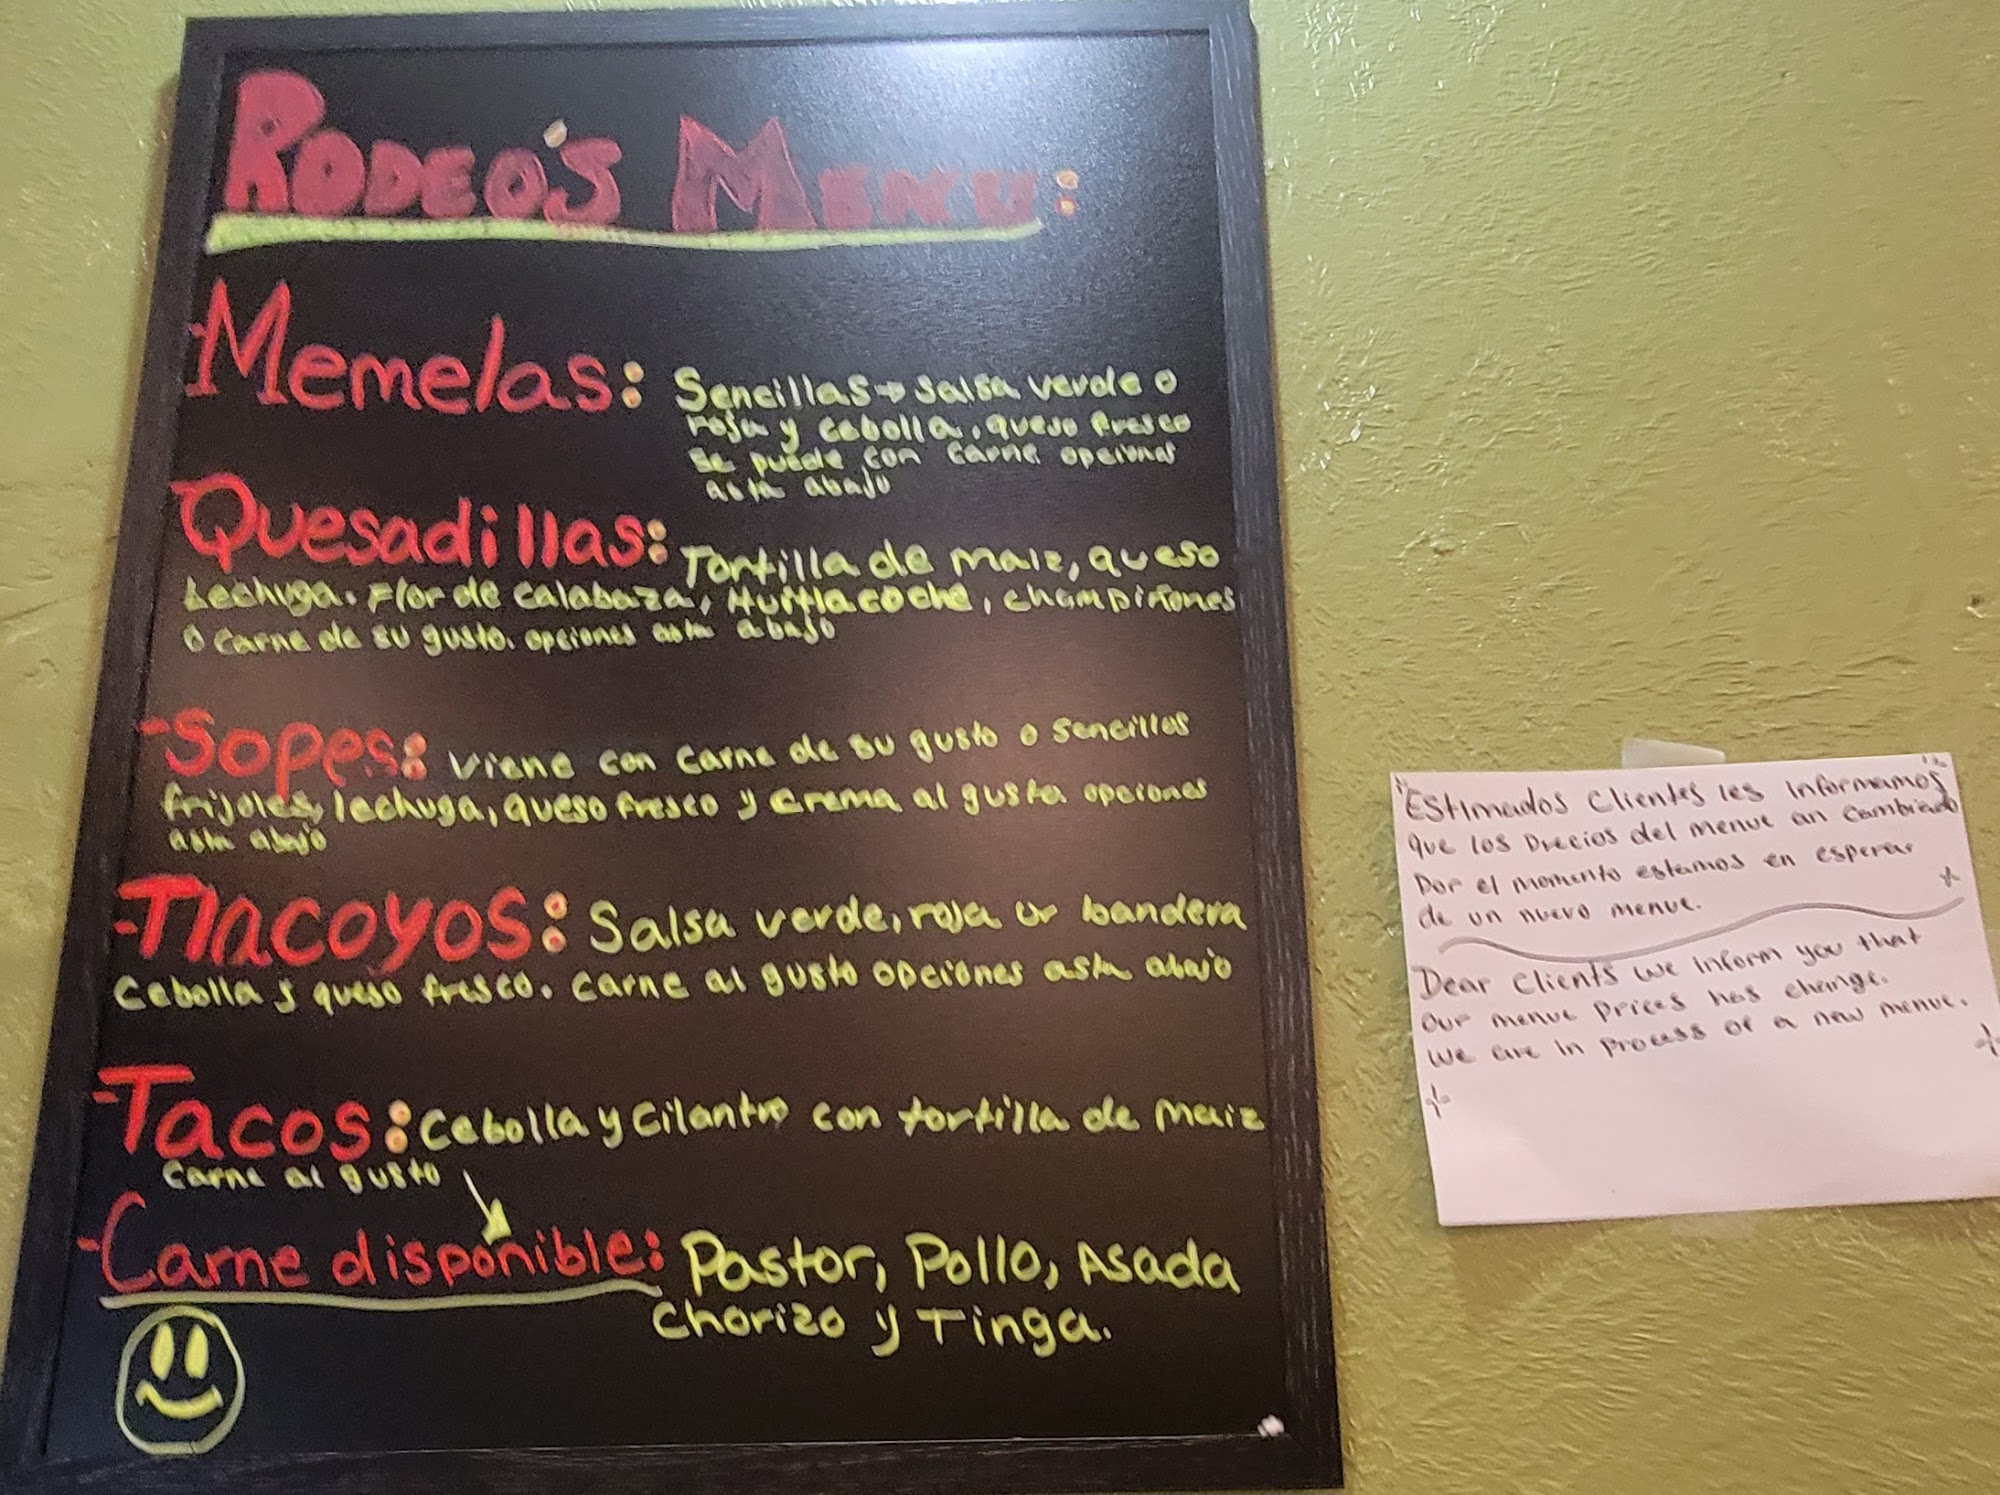 RODEO'S MENU:
-Memelas: Sencillas→ Salsa verde o
roja y cebolla, queso fresco
se puede con carne opciones
asta abajo
Quesadillas: Tortilla de maiz, queso
Lechuga. Flor de calabaza, Huitlacoche, champiñones
o carne de su gusto. opciones asta abajo
-Sopes: viene con carne de su gusto o sencillos
frijoles, lechuga, queso fresco y crema al gusto opciones
asta abajo
-Tlacoyos: Salsa verde, roja ur bandera
Cebolla y queso fresco. carne al gusto opciones asta abajo
-Tacos: Cebolla y Cilantro con tortilla de maiz
carne al gusto
-Carne disponible: Pastor, Pollo, Asada
Chorizo y Tinga.
Estimados Clientes les informamos
que los precios del menue an cambiado
por el momento estamos en esperar
de un nuevo menue.
Dear Clients we inform you that
our menue prices has change.
we are in process of a new menue.